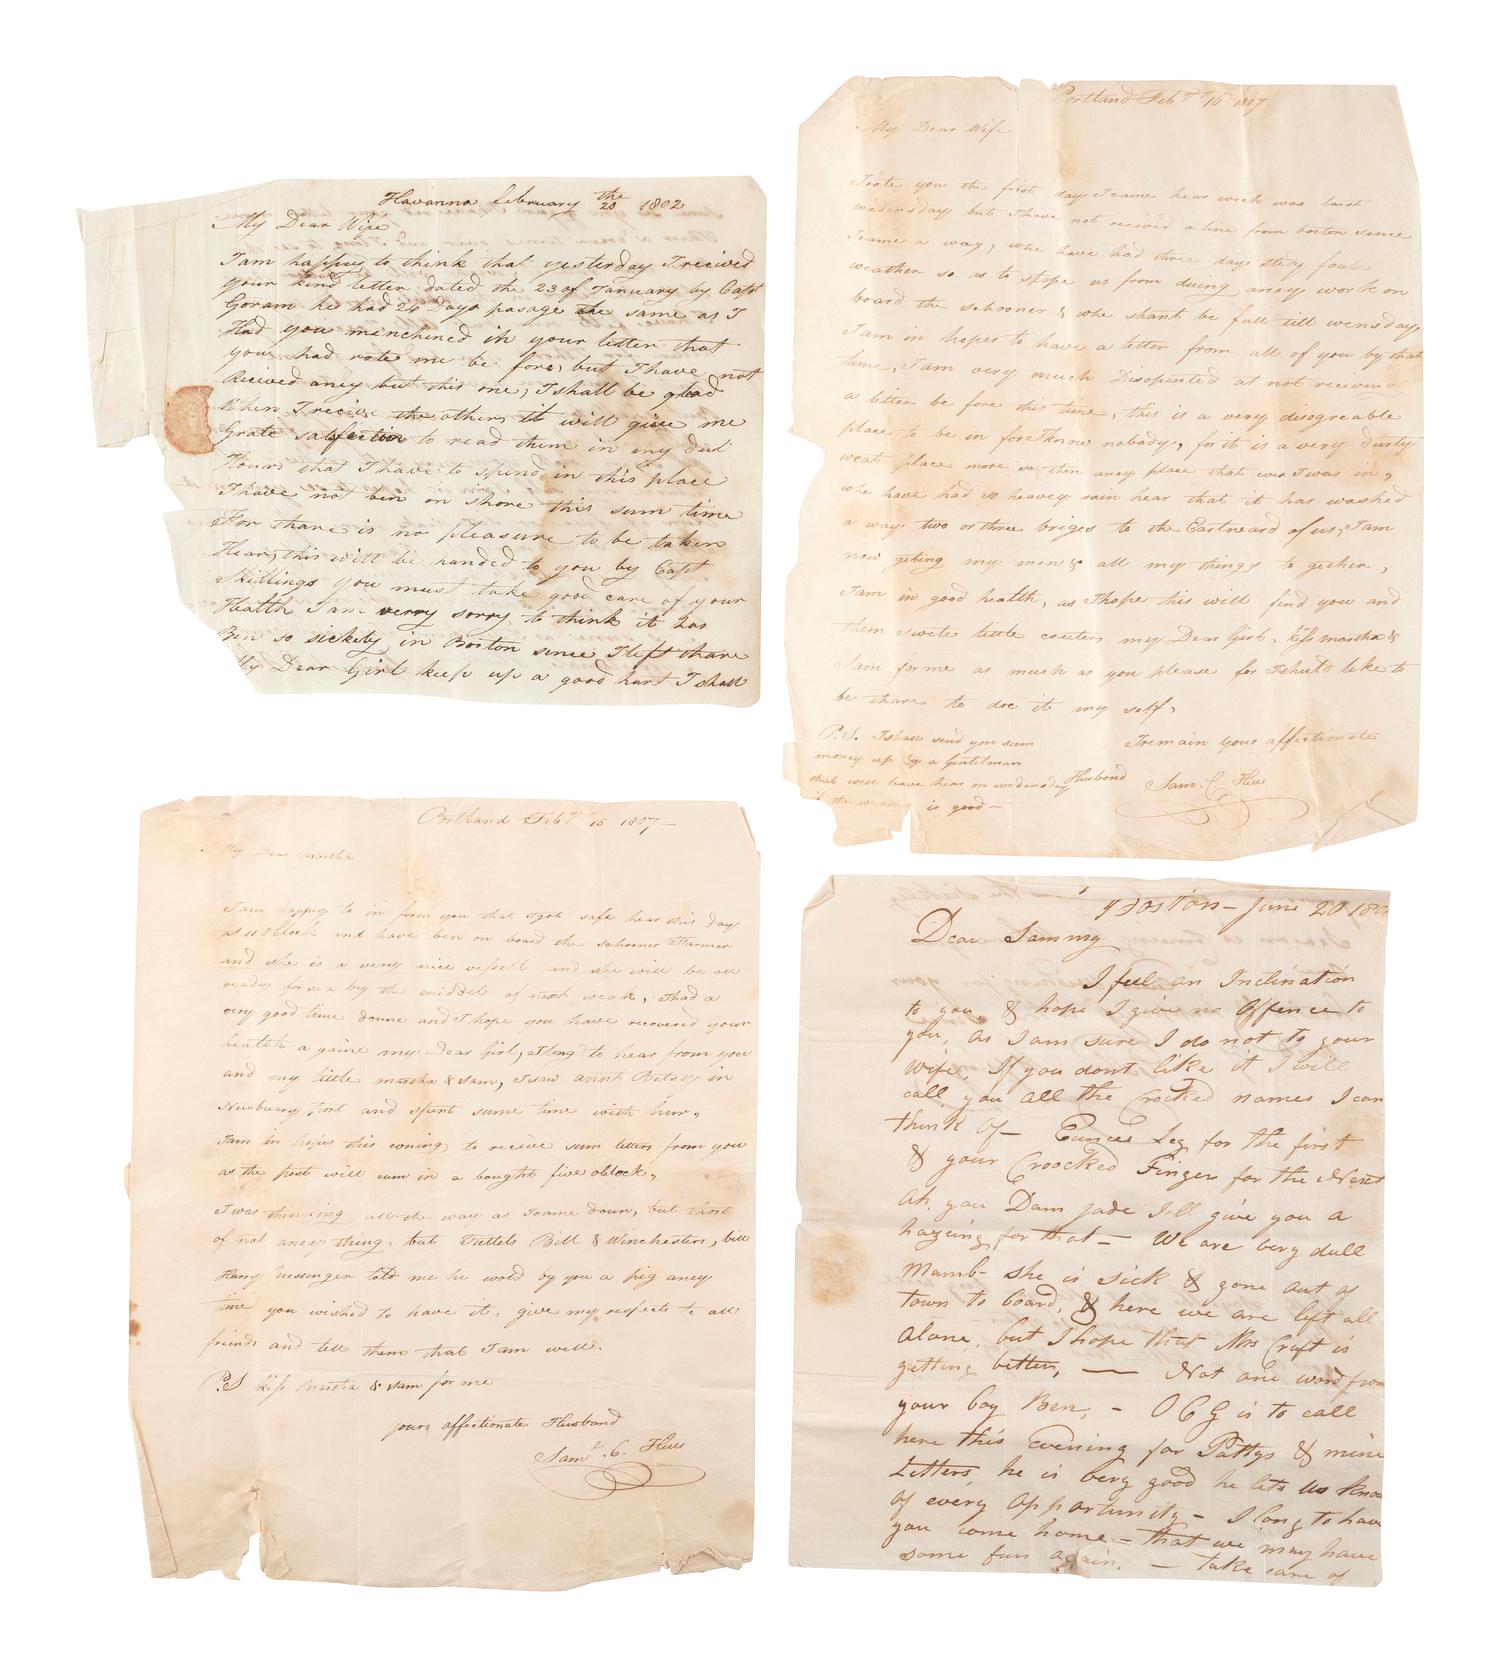 Havanna february the 28 1802
My Dear Wife
I am happy to think that yesterday I recived
your kind letter dated the 23 of January by Capt
Goram he had 24 Days pasage the same as I
Had you menchined in your letter that
you had rote me be fore, but I have not
Recived aney but this one, I shall be glad
When I recive the others, it will give me
Grate satfection to read them in my dul
Hours that I have to spend in this place
I have not ben on shore this sum time
For thare is no pleasure to be taken
Hear, this will be handed to you by Capt
Skillings you must take good care of your
Health I am verry sorry to think it has
Ben so sickely in Boston since I left thare
My Dear Girl keep up a good hart I shall
Portland Feb 16 1807
My Dear Wife
I rote you the first day I came hear wich was last
wedensday but I have not recived a line from boston since
I came a way, whe have had three days stedy foul
weather so as to stope us from duing aney work on
board the schooner & whe shant be full till wensday
I am in hopes to have a letter from all of you by that
time, I am very much Disopinted at not receiving
a letter be fore this time, this is a very disogreable
place to be in for I know nobody, for it is a very durty
weat place more so then aney place that ever I was in,
whe have had so heavey rain hear that it has washed
a way two or three briges to the Eastward of us, I am
now geting my men & all my things to gether,
I am in good health, as I hope this will find you and
them swete little creuters my Dear Girl, kiss martha &
Sam for me as much as you please for I shuld like to
be thare to doe it my self,
I remain your affectionate
Husband Sam. C Hews
P.S. I shall send you sum
money up by a Gentilman
that will leave hear on wednesday
if the weather is good—
Portland Feb 15 1807—
My Dear Martha
I am happy to in form you that I got safe hear this day
at 11 oClock and have ben on board the schooner Farmer
and she is a very nice vessell and she will be all
ready for sea by the middel of next weak, I had a
very good time doune and I hope you have recovered your
health a gaine my Dear Girl, I long to hear from you
and my little martha & Sam, I saw annt Betsey in
Newbuary port and spent sume time with hur,
I am in hopes this evning to recive sum letters from you
as the post will cum in a bought five oblock,
I was thinking all the way as I came doun, but thort
of not aney thing, but Tuttels Bill & Winchesters, bill
Harry Messinger told me he woold by you a pig aney
time you wished to have it, give my respects to all
friends and tell them that I am well.
P.S kiss Martha & Sam for me
your affectionate Husband
Sam C. Hews
Boston— June 20 180
Dear Sammy
I feel an Inclination
to you, & hope I give no Offence to
you, as I am sure I do not to your
wife, If you dont like it I will
call you all the Crocked names I can
think of— Eunces Leg for the first
& your Croocked Finger for the Next
Ah, you Dam Jade I'll give you a
hazeing for that— We are very dull
Mamb- she is sick & gone out of
town to board, & here we are left all
alone, but I hope that Mrs Craft is
getting better, — Not one word from
your boy Ben, — O C G is to call
here this Evening for Pattys & mine
Letters, he is very good he lets us know
of every Opportunity— I long to have
you come home— that we may have
some fun again, — take care of